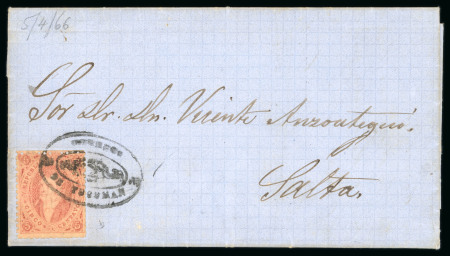 5/4/66
Sor Dr. Dn. Vicente Anzoategui.
Salta.
CORREOS
DE TUCUMAN